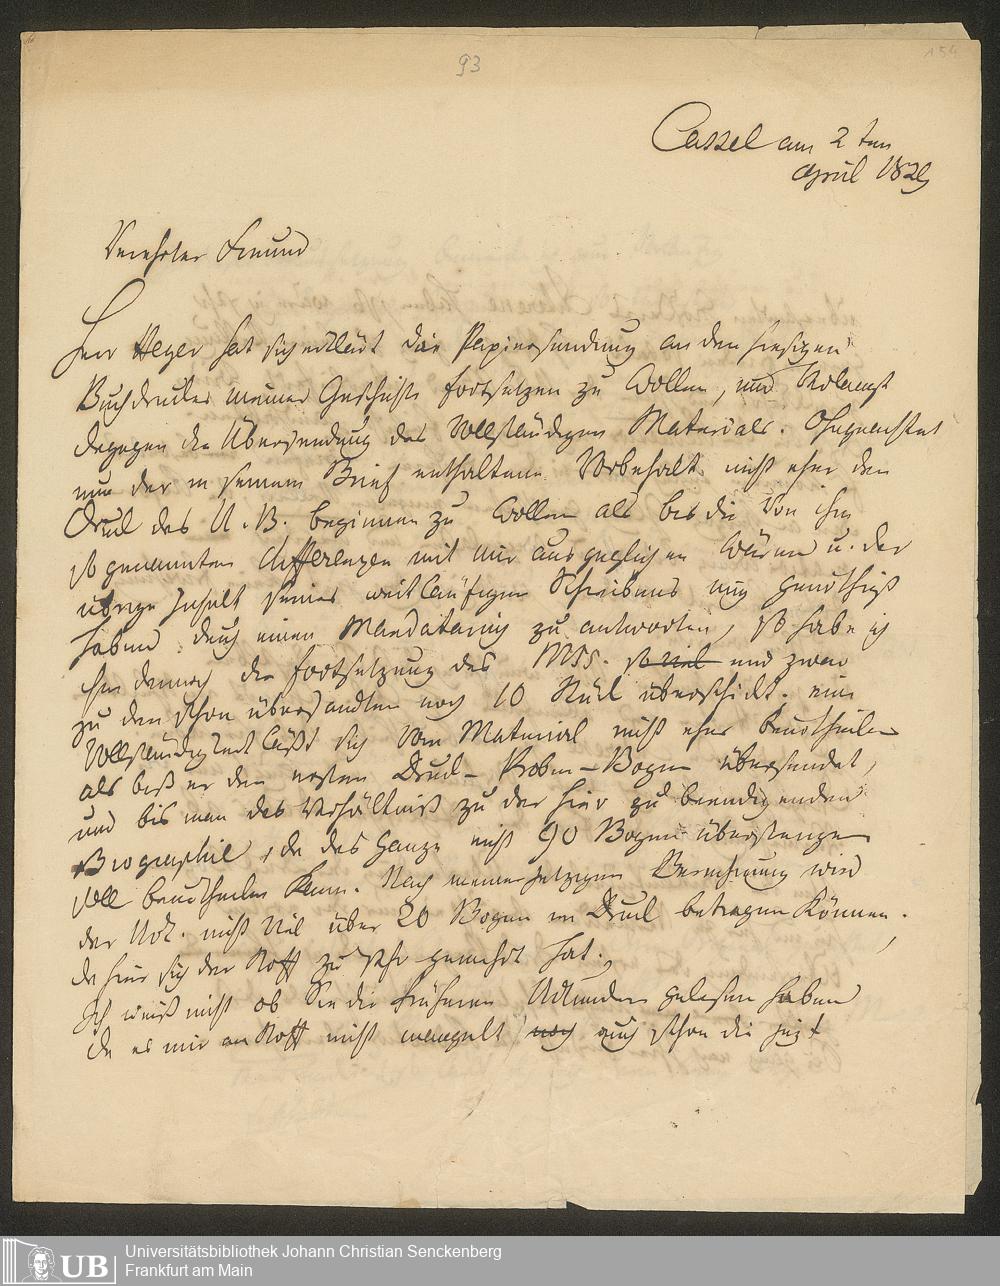 93
154
Cassel am 2ten
April 1829
Verehrter Freund
Herr Heyer hat sich erklärt die Papiersendung an den hiesigen
Buchdrucker meiner Geschichte fortsetzen zu wollen, und verlangt
dagegen die Übersendung des vollständigen Materials. Ohngeachtet
nun der in seinem Brief enthaltene Vorbehalt nicht eher den
Druck des U. B. beginnen zu wollen als bis die von ihm
so genannten differenzen mit mir ausgeglichen wären u. der
übrige Inhalt seines weitläufigen Schreibens mich genöthigt
haben durch einen Mandatarius zu antworten, so habe ich
ihm dennoch die fortsetzung des MSS. so viel und zwar
zu den schon übersandten noch 10 Stück überschickt. eine
Vollständigkeit läßt sich vom Material nicht eher beurtheilen
als biß er den ersten Druck-Proben-Bogen übersendet,
und bis man das Verhältniß zu der hier zu beendigenden
Biographie, da das Ganze nicht 90 Bogen übersteigen
soll beurtheilen kann. Nach meiner jetzigen Berechnung wird
der nicht viel über 20 Bogen im Druck betragen können.
da hier sich der Stoff zu sehr gemehrt hat.
Ich weiß nicht ob Sie die früheren gelesen haben
da es mir an Stoff nicht mangelt noch auch schon die jetzt
UB
Universitätsbibliothek Johann Christian Senckenberg
Frankfurt am Main